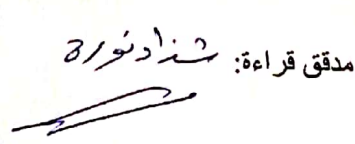 مدقق قراءة: شذا دنورة